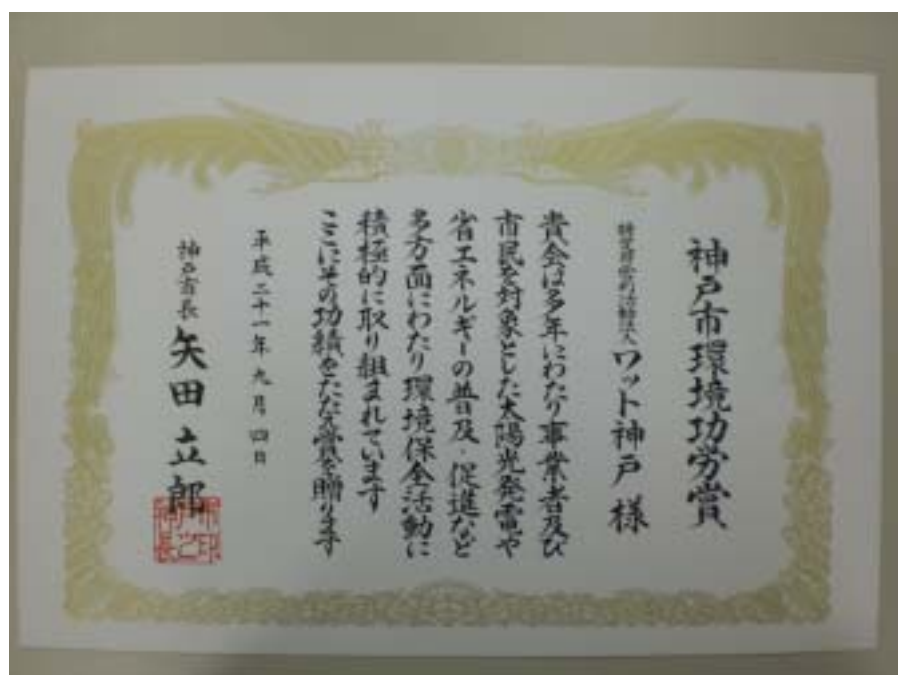 神戸市環境功労賞
特定非営利活動法人 ワット神戸 様
貴会は多年にわたり事業者及び
市民を対象とした太陽光発電や
省エネルギーの普及・促進など
多方面にわたり環境保全活動に
積極的に取り組まれています
ここにその功績をたたえ賞を贈ります
平成二十一年九月四日
神戸市長 矢田立郎
神戸市長之印